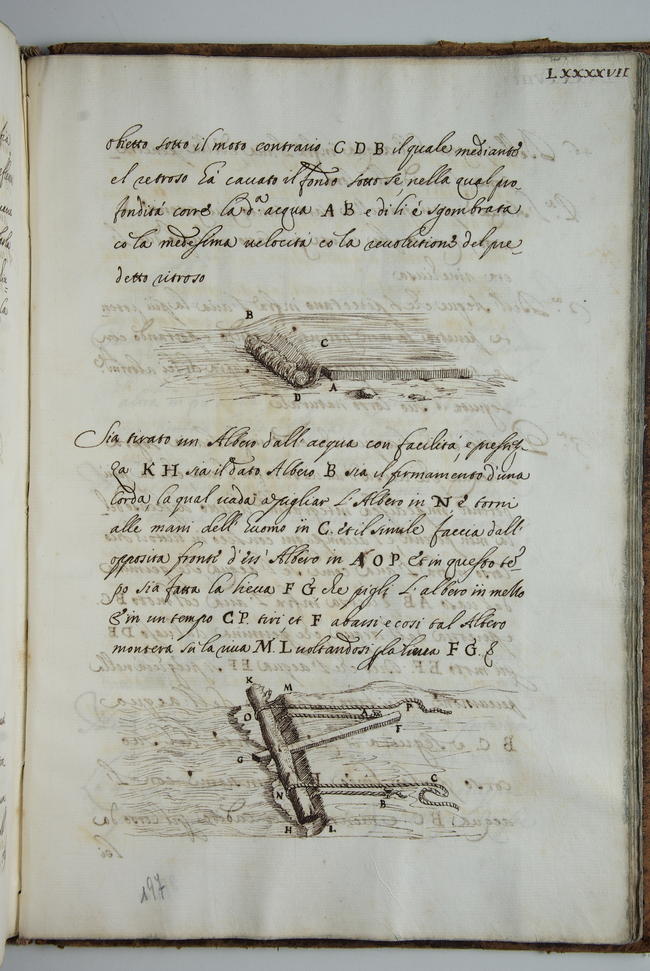 LXXXXVII
obietto sotto il moto contrario C D B il quale mediante
el retroso ha cavato il fondo sotto se nella qual pro-
fondità corre la d.ª acqua A B e di li è sgombrata
cō la medesima velocità cō la revolutione del pre-
detto ritroso
B
C
D
A
Sia tirato un Albero dall' acqua con facilità, e prestez-
za K H sia il dato Albero B sia il firmamento d'una
Corda, la qual vada a pigliar l'Albero in N e torni
alle mani dell' uomo in C. et il simile faccia dall'
opposita fronte d'ess' Albero in A O P et in questo tē-
po sia fatta la lieva F G, che pigli l'albero in mezzo
& in un tempo C P. tiri et F abassi, e cosi tal Albero
monterà sù la riva M. L voltandosi la lieva F G. &
K
M
O
A
P
F
G
N
C
B
H
L
197